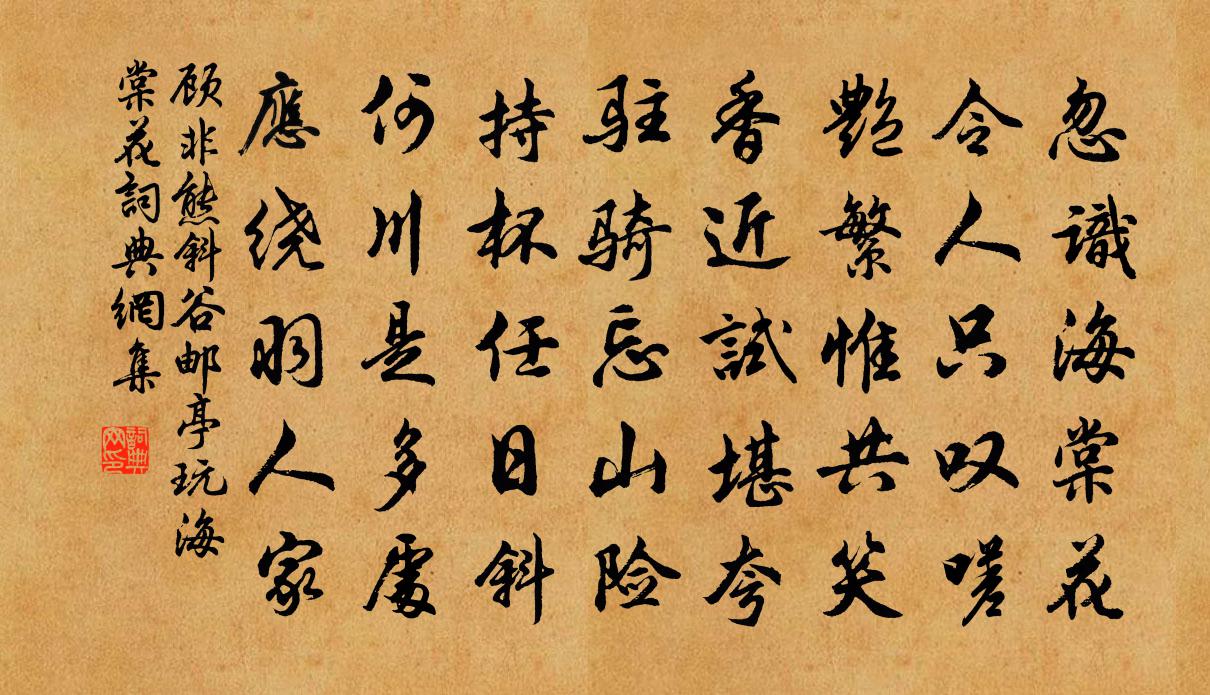 忽識海棠花
令人只叹嗟
艷繁惟共笑
香近試堪夸
駐騎忘山险
持杯任日斜
何川是多處
應绕羽人家
顾非熊斜谷邮亭玩海
棠花詞典網集
詞典
网印